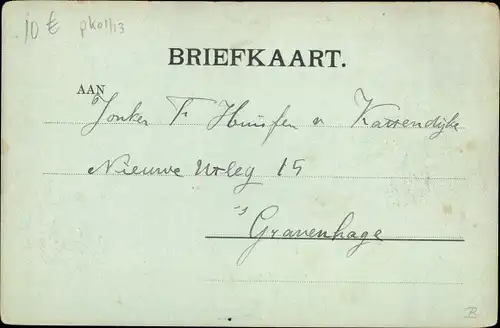 10 € pk01/13
BRIEFKAART.
AAN
Jonker F. Huijsen v Kattendijke
Nieuwe Uitleg 15
's
Gravenhage
B